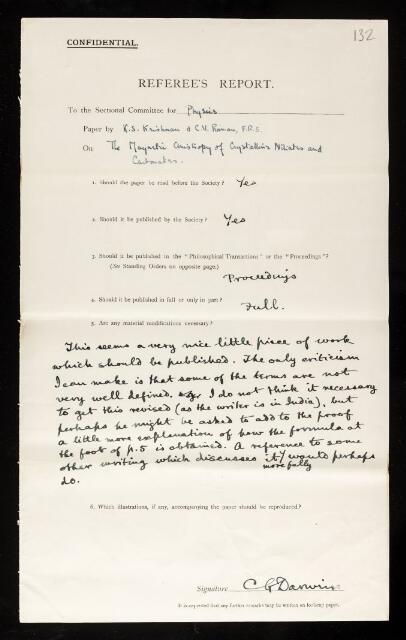 132
CONFIDENTIAL.
REFEREE'S REPORT.
To the Sectional Committee for Physics
Paper by K.S. Krishnan & C.V. Raman, F.R.S.
On The Magnetic Anisotropy of Crystalline Nitrates and
Carbonates.
1. Should the paper be read before the Society? Yes
2. Should it be published by the Society? Yes
3. Should it be published in the "Philosophical Transactions" or the "Proceedings"?
(See Standing Orders on opposite page.)
Proceedings
4. Should it be published in full or only in part?
Full.
5. Are any material modifications necessary?
This seems a very nice little piece of work
which should be published. The only criticism
I can make is that some of the terms are not
very well defined. I do not think it necessary
to get this revised (as the writer is in India), but
perhaps he might be asked to add to the proof
a little more explanation of how the formula at
the foot of p.5 is obtained. A reference to some
other writing which discusses it would perhaps
more fully
do.
6. Which illustrations, if any, accompanying the paper should be reproduced?
Signature C G Darwin
It is requested that any further remarks may be written on foolscap paper.